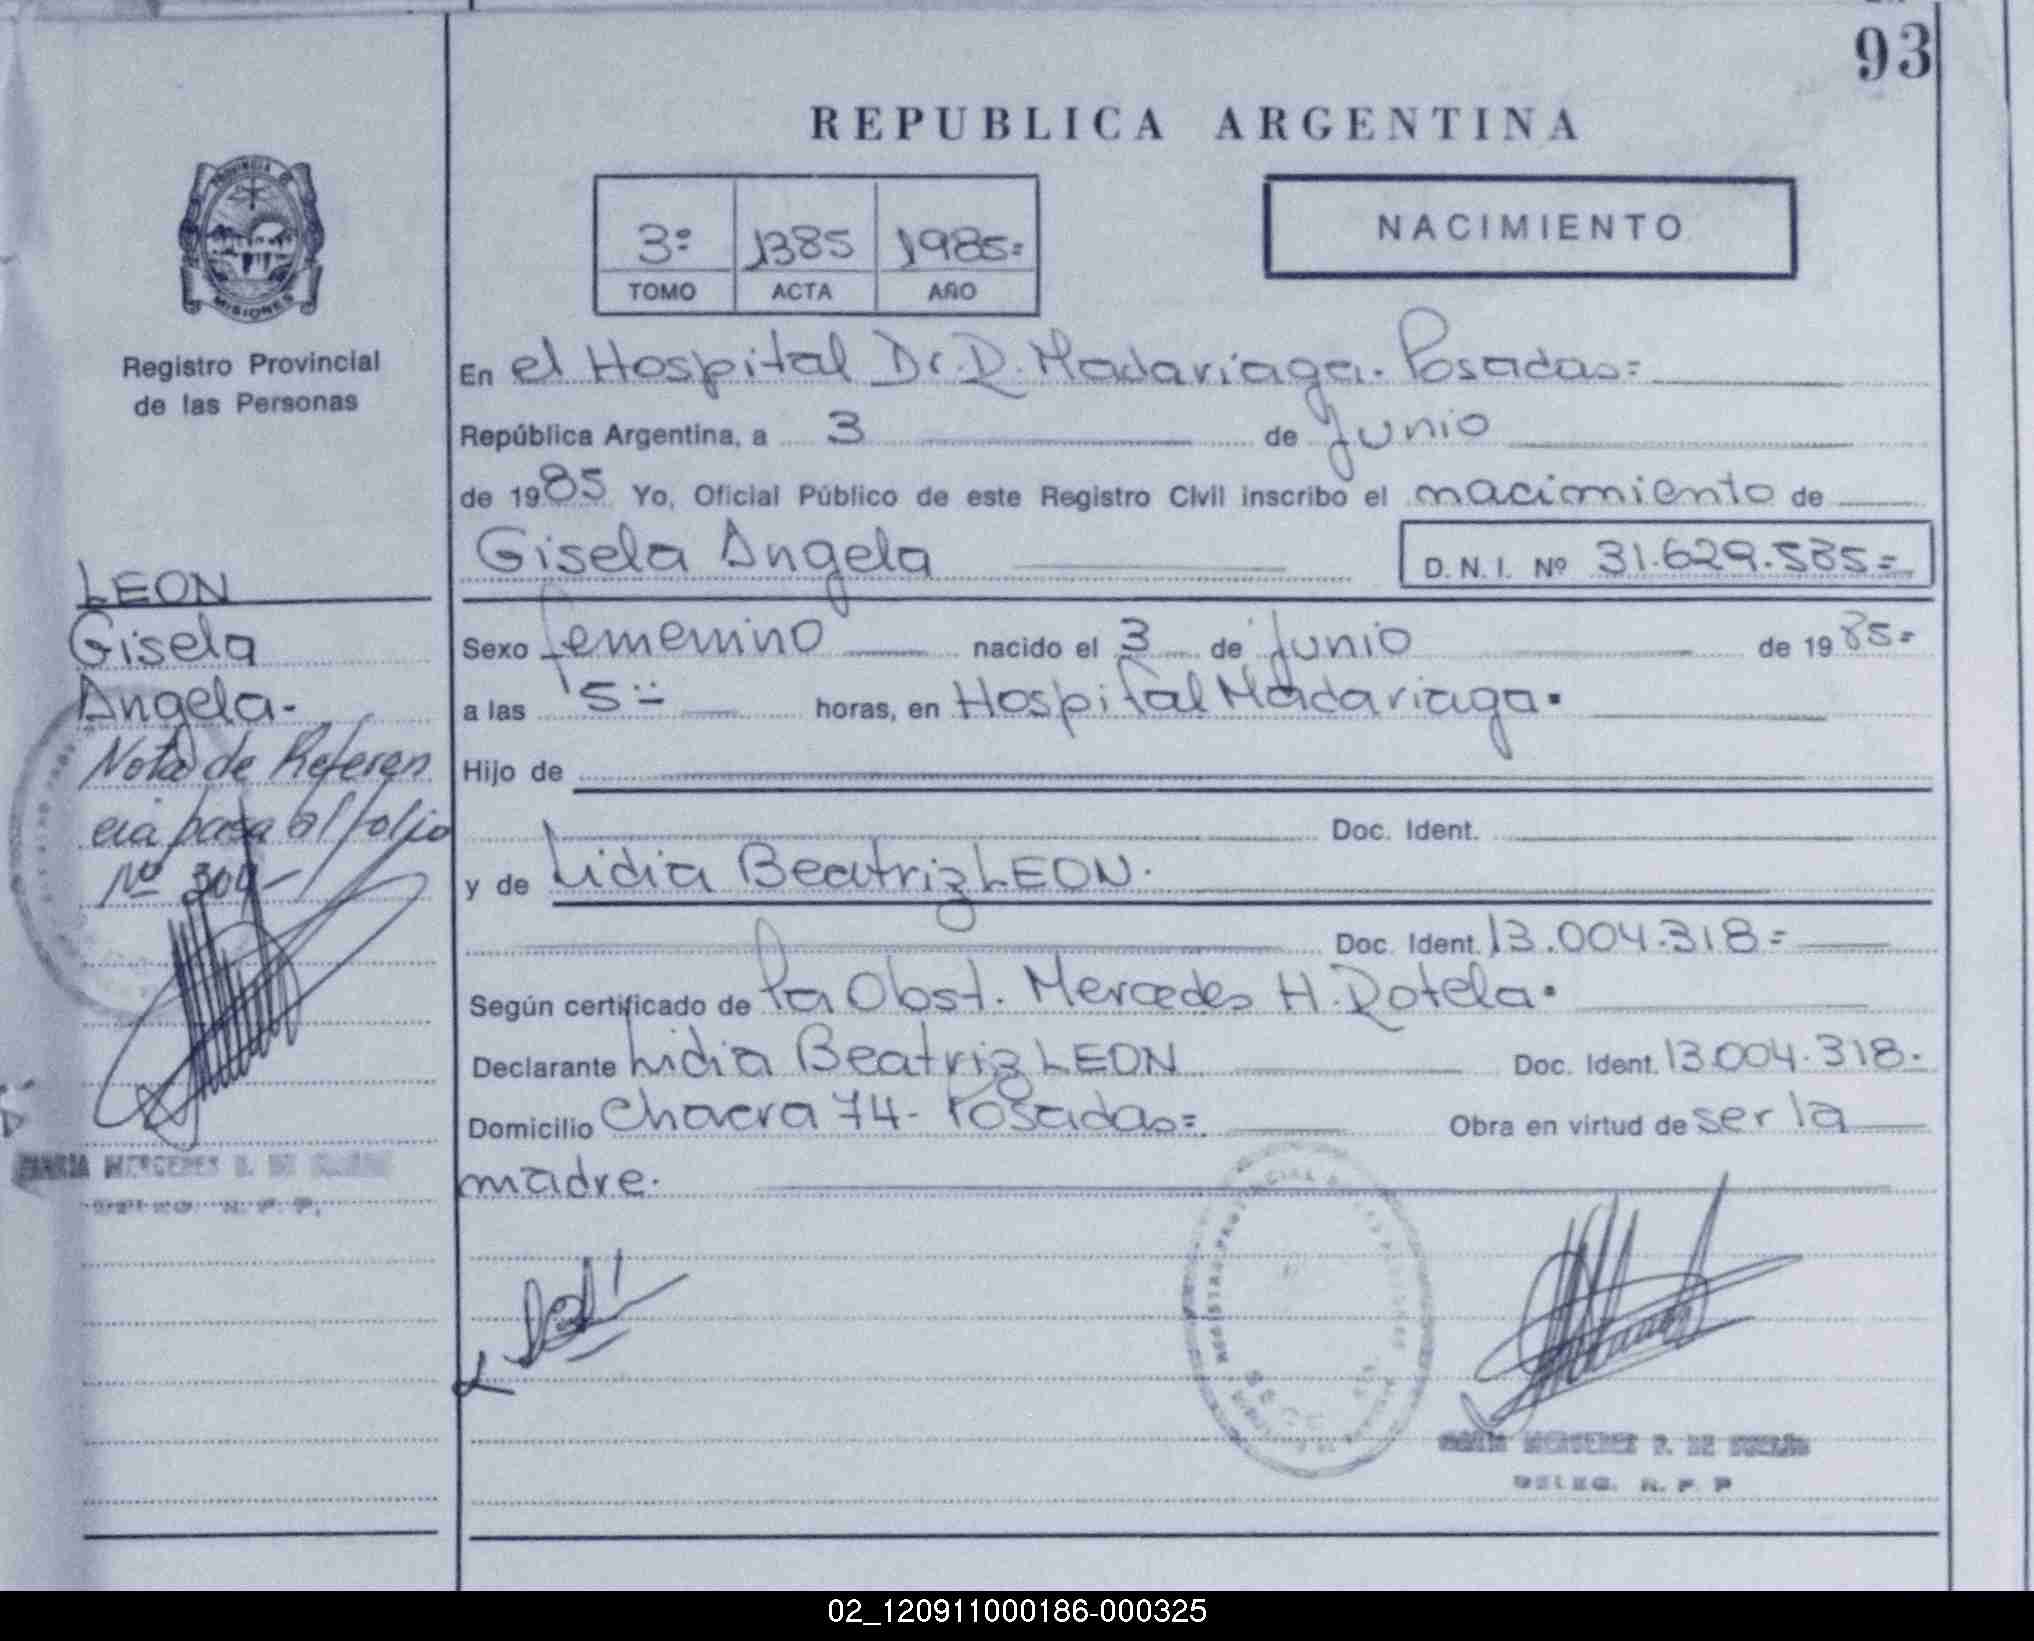 93
REPUBLICA ARGENTINA
PROVINCIA DE
MISIONES
3º 1385 1985=
TOMO ACTA AÑO
NACIMIENTO
Registro Provincial
de las Personas
En el Hospital Dr. R. Madariaga. Posadas=
República Argentina, a 3 de Junio
de 1985 Yo, Oficial Público de este Registro Civil inscribo el nacimiento de
Gisela Angela
D.N.I. Nº 31.629.535=
LEON
Gisela
Angela.-
Nota de Referen
cia pasa al folio
Nº 304-
Sexo femenino nacido el 3 de Junio de 1985=
a las 5= horas, en Hospital Madariaga.
Hijo de
Doc. Ident.
y de Lidia Beatriz LEON.
Doc. Ident. 13.004.318=
Según certificado de la Obst. Mercedes H. Rotela.
Declarante Lidia Beatriz LEON Doc. Ident. 13.004.318.
Domicilio Chacra 74- Posadas= Obra en virtud de ser la
madre.
MARIA MERCEDES DE
DELEG. R. P. P.
MARIA MERCEDES DE
DELEG. R. P. P
02_120911000186-000325